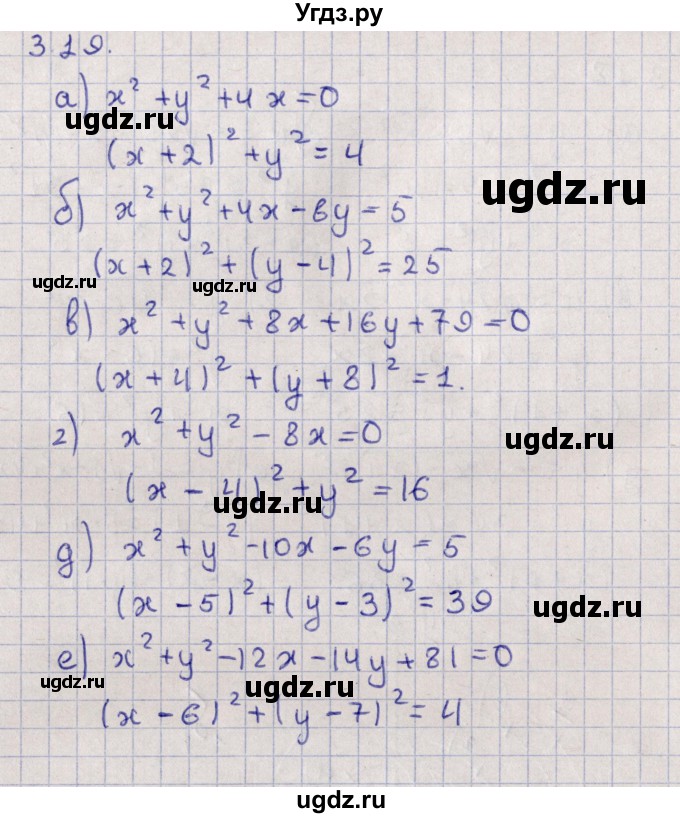 Угдз.ру
3.19.
а) x² + y² + 4x = 0
ugdz.ru
(x + 2)² + y² = 4
ugdz.ru
б) x² + y² + 4x - 6y = 5
(x + 2)² + (y - 4)² = 25
ugdz.ru ugdz.ru
в) x² + y² + 8x + 16y + 79 = 0
(x + 4)² + (y + 8)² = 1.
г) x² + y² - 8x = 0
ugdz.ru
(x - 4)² + y² = 16
ugdz.ru
д) x² + y² - 10x - 6y = 5
(x - 5)² + (y - 3)² = 39
ugdz.ru
е) x² + y² - 12x - 14y + 81 = 0
ugdz.ru ugdz.ru
(x - 6)² + (y - 7)² = 4
ugdz.ru
ugdz.ru